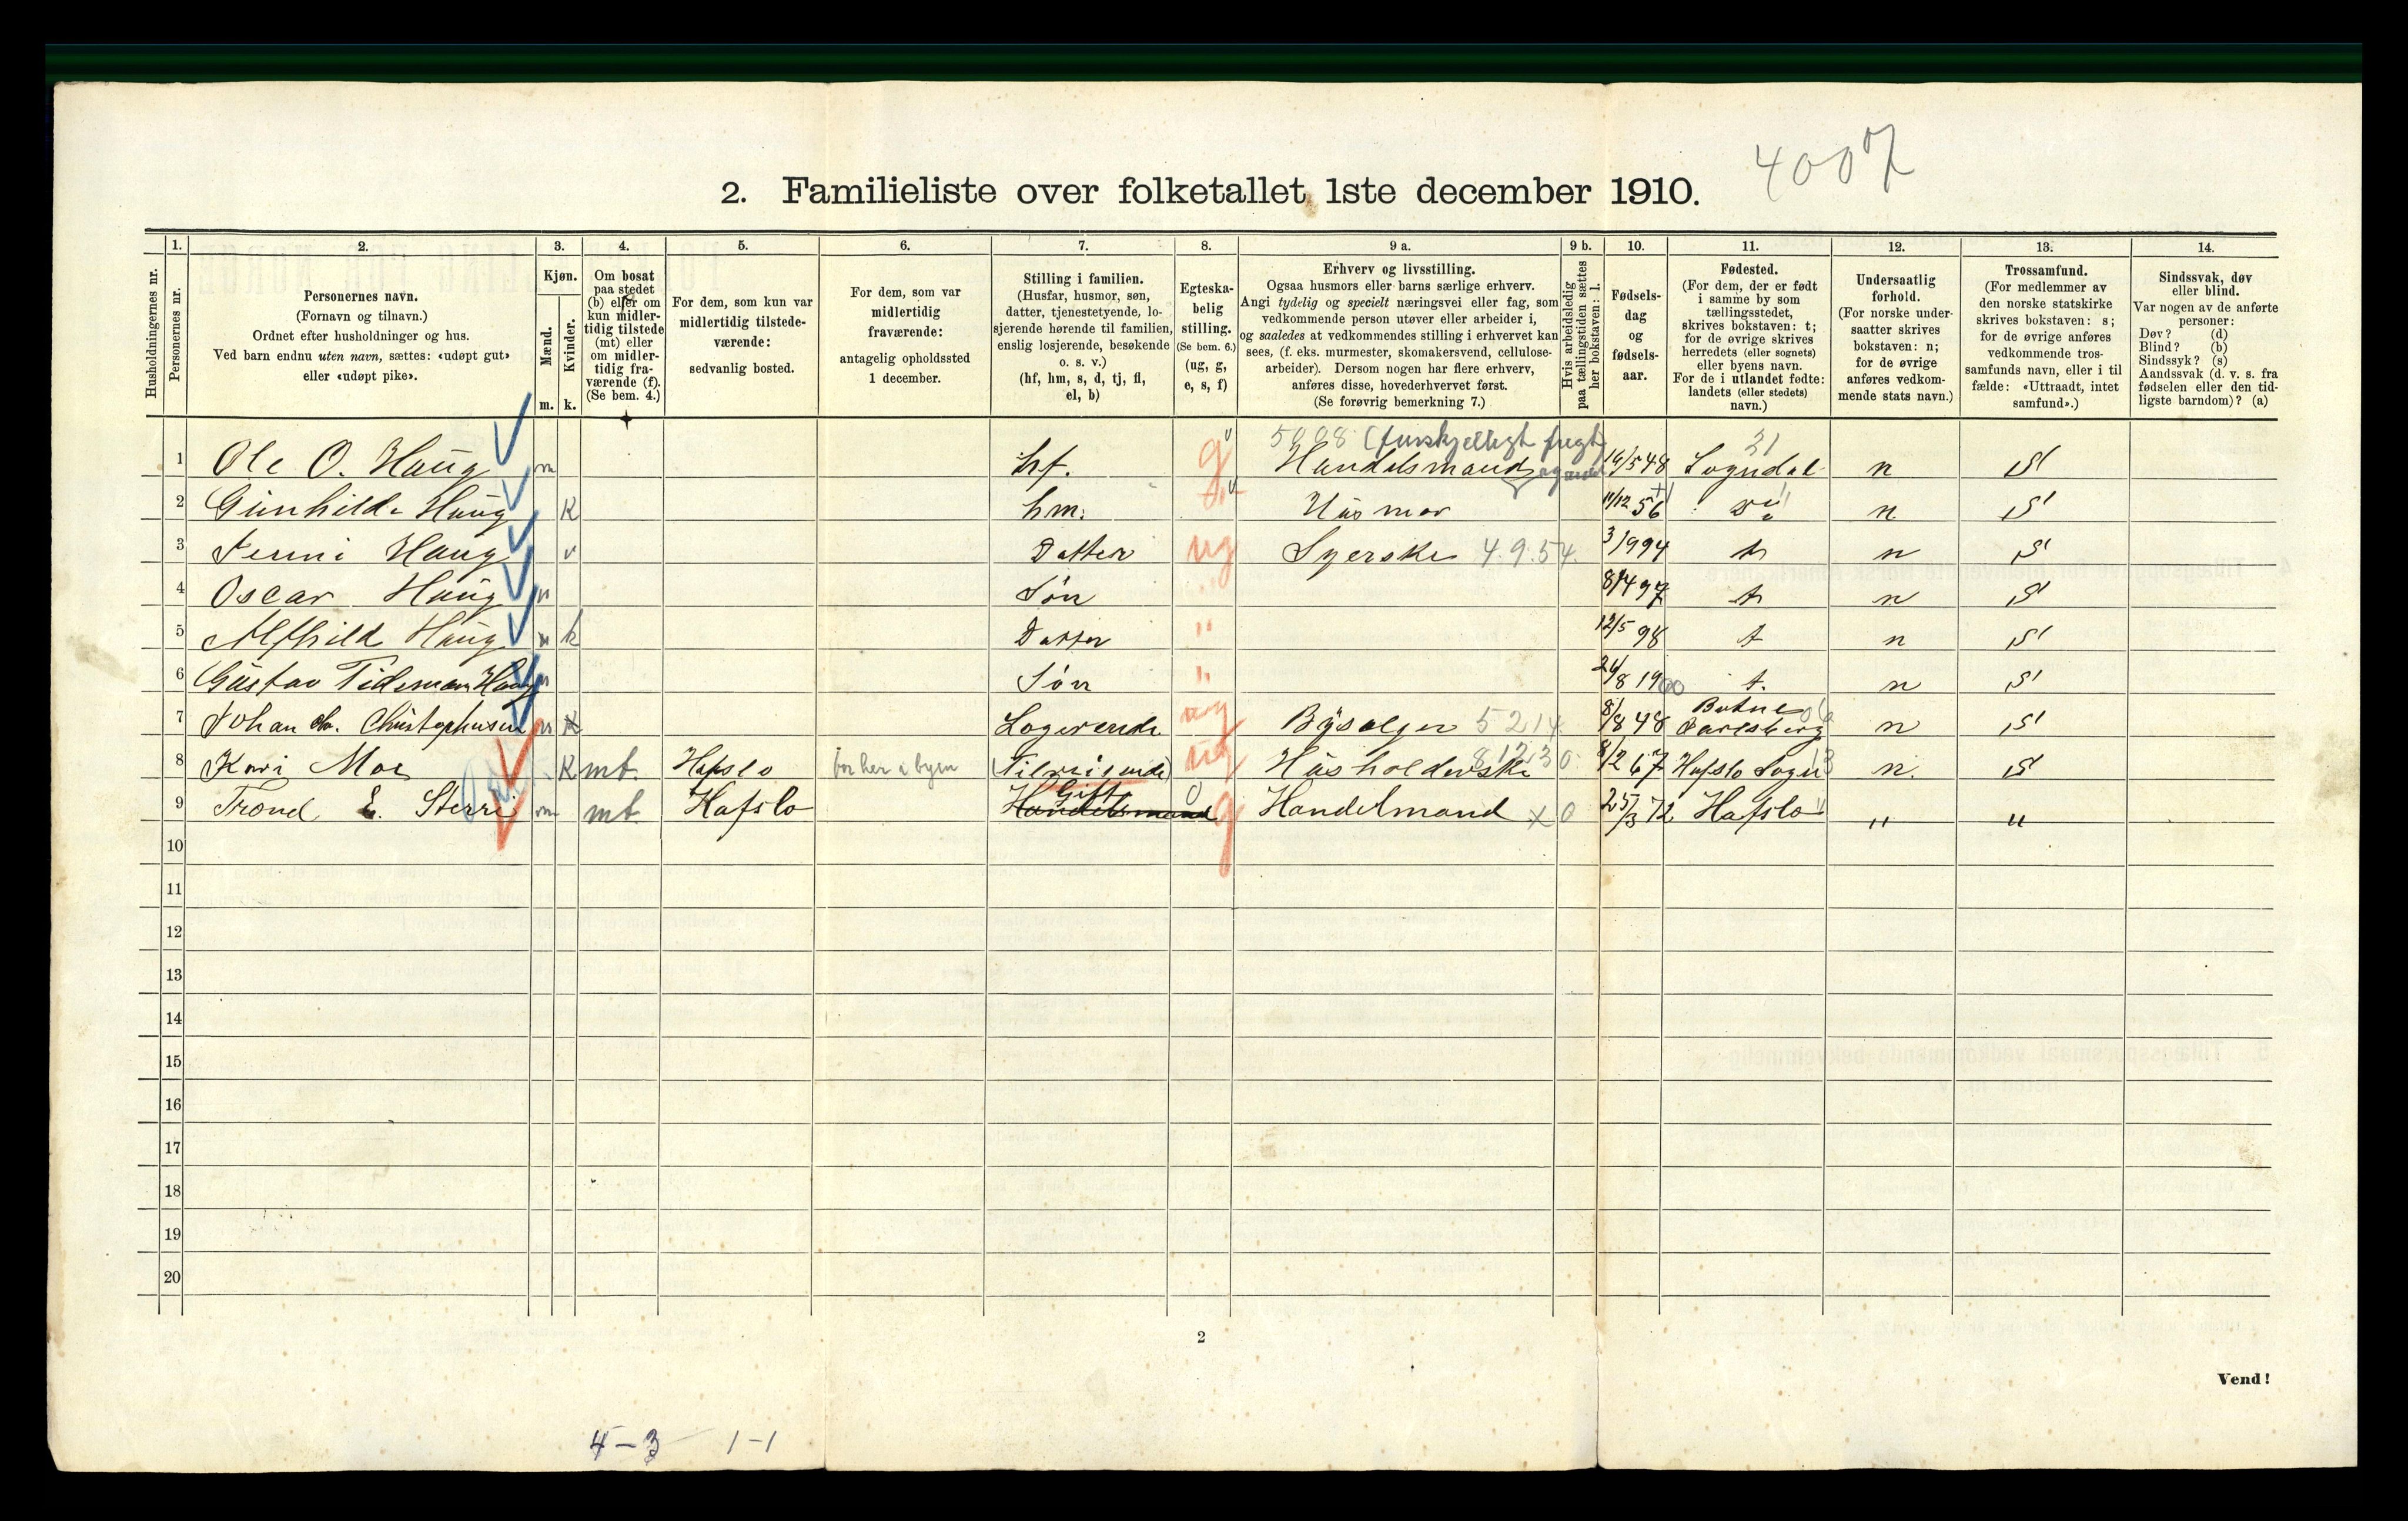 4007
2. Familieliste over folketallet 1ste december 1910.
Husholdningernes nr.
1. Personernes nr.
2. Personernes navn.
(Fornavn og tilnavn.)
Ordnet efter husholdninger og hus.
Ved barn endnu uten navn, sættes: «udøpt gut»
eller «udøpt pike».
3. Kjøn.
Mænd. m.
Kvinder. k.
4. Om bosat
paa stedet
(b) eller om
kun midler-
tidig tilstede
(mt) eller
om midler-
tidig fra-
værende (f).
(Se bem. 4.)
5. For dem, som kun var
midlertidig tilstede-
værende:
sedvanlig bosted.
6. For dem, som var
midlertidig
fraværende:
antagelig opholdssted
1 december.
7. Stilling i familien.
(Husfar, husmor, søn,
datter, tjenestetyende, lo-
sjerende hørende til familien,
enslig losjerende, besøkende
o. s. v.)
(hf, hm, s, d, tj, fl,
el, b)
8. Egteska-
belig
stilling.
(Se bem. 6.)
(ug, g,
e, s, f)
9 a. Erhverv og livsstilling.
Ogsaa husmors eller barns særlige erhverv.
Angi tydelig og specielt næringsvei eller fag, som
vedkommende person utøver eller arbeider i,
og saaledes at vedkommendes stilling i erhvervet kan
sees, (f. eks. murmester, skomakersvend, cellulose-
arbeider). Dersom nogen har flere erhverv,
anføres disse, hovederhvervet først.
(Se forøvrig bemerkning 7.)
9 b. Hvis arbeidsledig
paa tællingstiden sættes
her bokstaven: l.
10. Fødsels-
dag
og
fødsels-
aar.
11. Fødested.
(For dem, der er født
i samme by som
tællingsstedet,
skrives bokstaven: t;
for de øvrige skrives
herredets (eller sognets)
eller byens navn.
For de i utlandet fødte:
landets (eller stedets)
navn.)
12. Undersaatlig
forhold.
(For norske under-
saatter skrives
bokstaven: n;
for de øvrige
anføres vedkom-
mende stats navn.)
13. Trossamfund.
(For medlemmer av
den norske statskirke
skrives bokstaven: s;
for de øvrige anføres
vedkommende tros-
samfunds navn, eller i til
fælde: «Uttraadt, intet
samfund».)
14. Sindssvak, døv
eller blind.
Var nogen av de anførte
personer:
Døv? (d)
Blind? (b)
Sindssyk? (s)
Aandssvak (d. v. s. fra
fødselen eller den tid-
ligste barndom)? (a)
1 Ole O. Haug m hf. g Handelsmand 16/5 48 Sogndal n S
2 Gunhilde Haug K hm. g Husmor 11/12 56 n S
3 Jenni Haug Datter ug Syerske 4.9.54. 3/9 94 t n S
4 Oscar Haug m Søn " 8/4 97 t n S
5 Alfhild Haug k Datter " 12/5 98 t n S
6 Gustav Tideman Haug m Søn " 24/8 1900 t. n S
7 Johan Chr. Christophersen m Logerende ug Bysælger 5214 8/8 48 Botne n S
8 Kari Moe K mt. Hafslo bor her i byen (Tilreisende) ug Husholderske 8/2 67 Hafslo Sogn n. S
9 Trond E. Sterri m mt. Hafslo Gift Handelsmand g Handelmand x 0 25/3 72 Hafslo " " "
10
11
12
13
14
15
16
17
18
19
20
2
Vend!
4-3 1-1